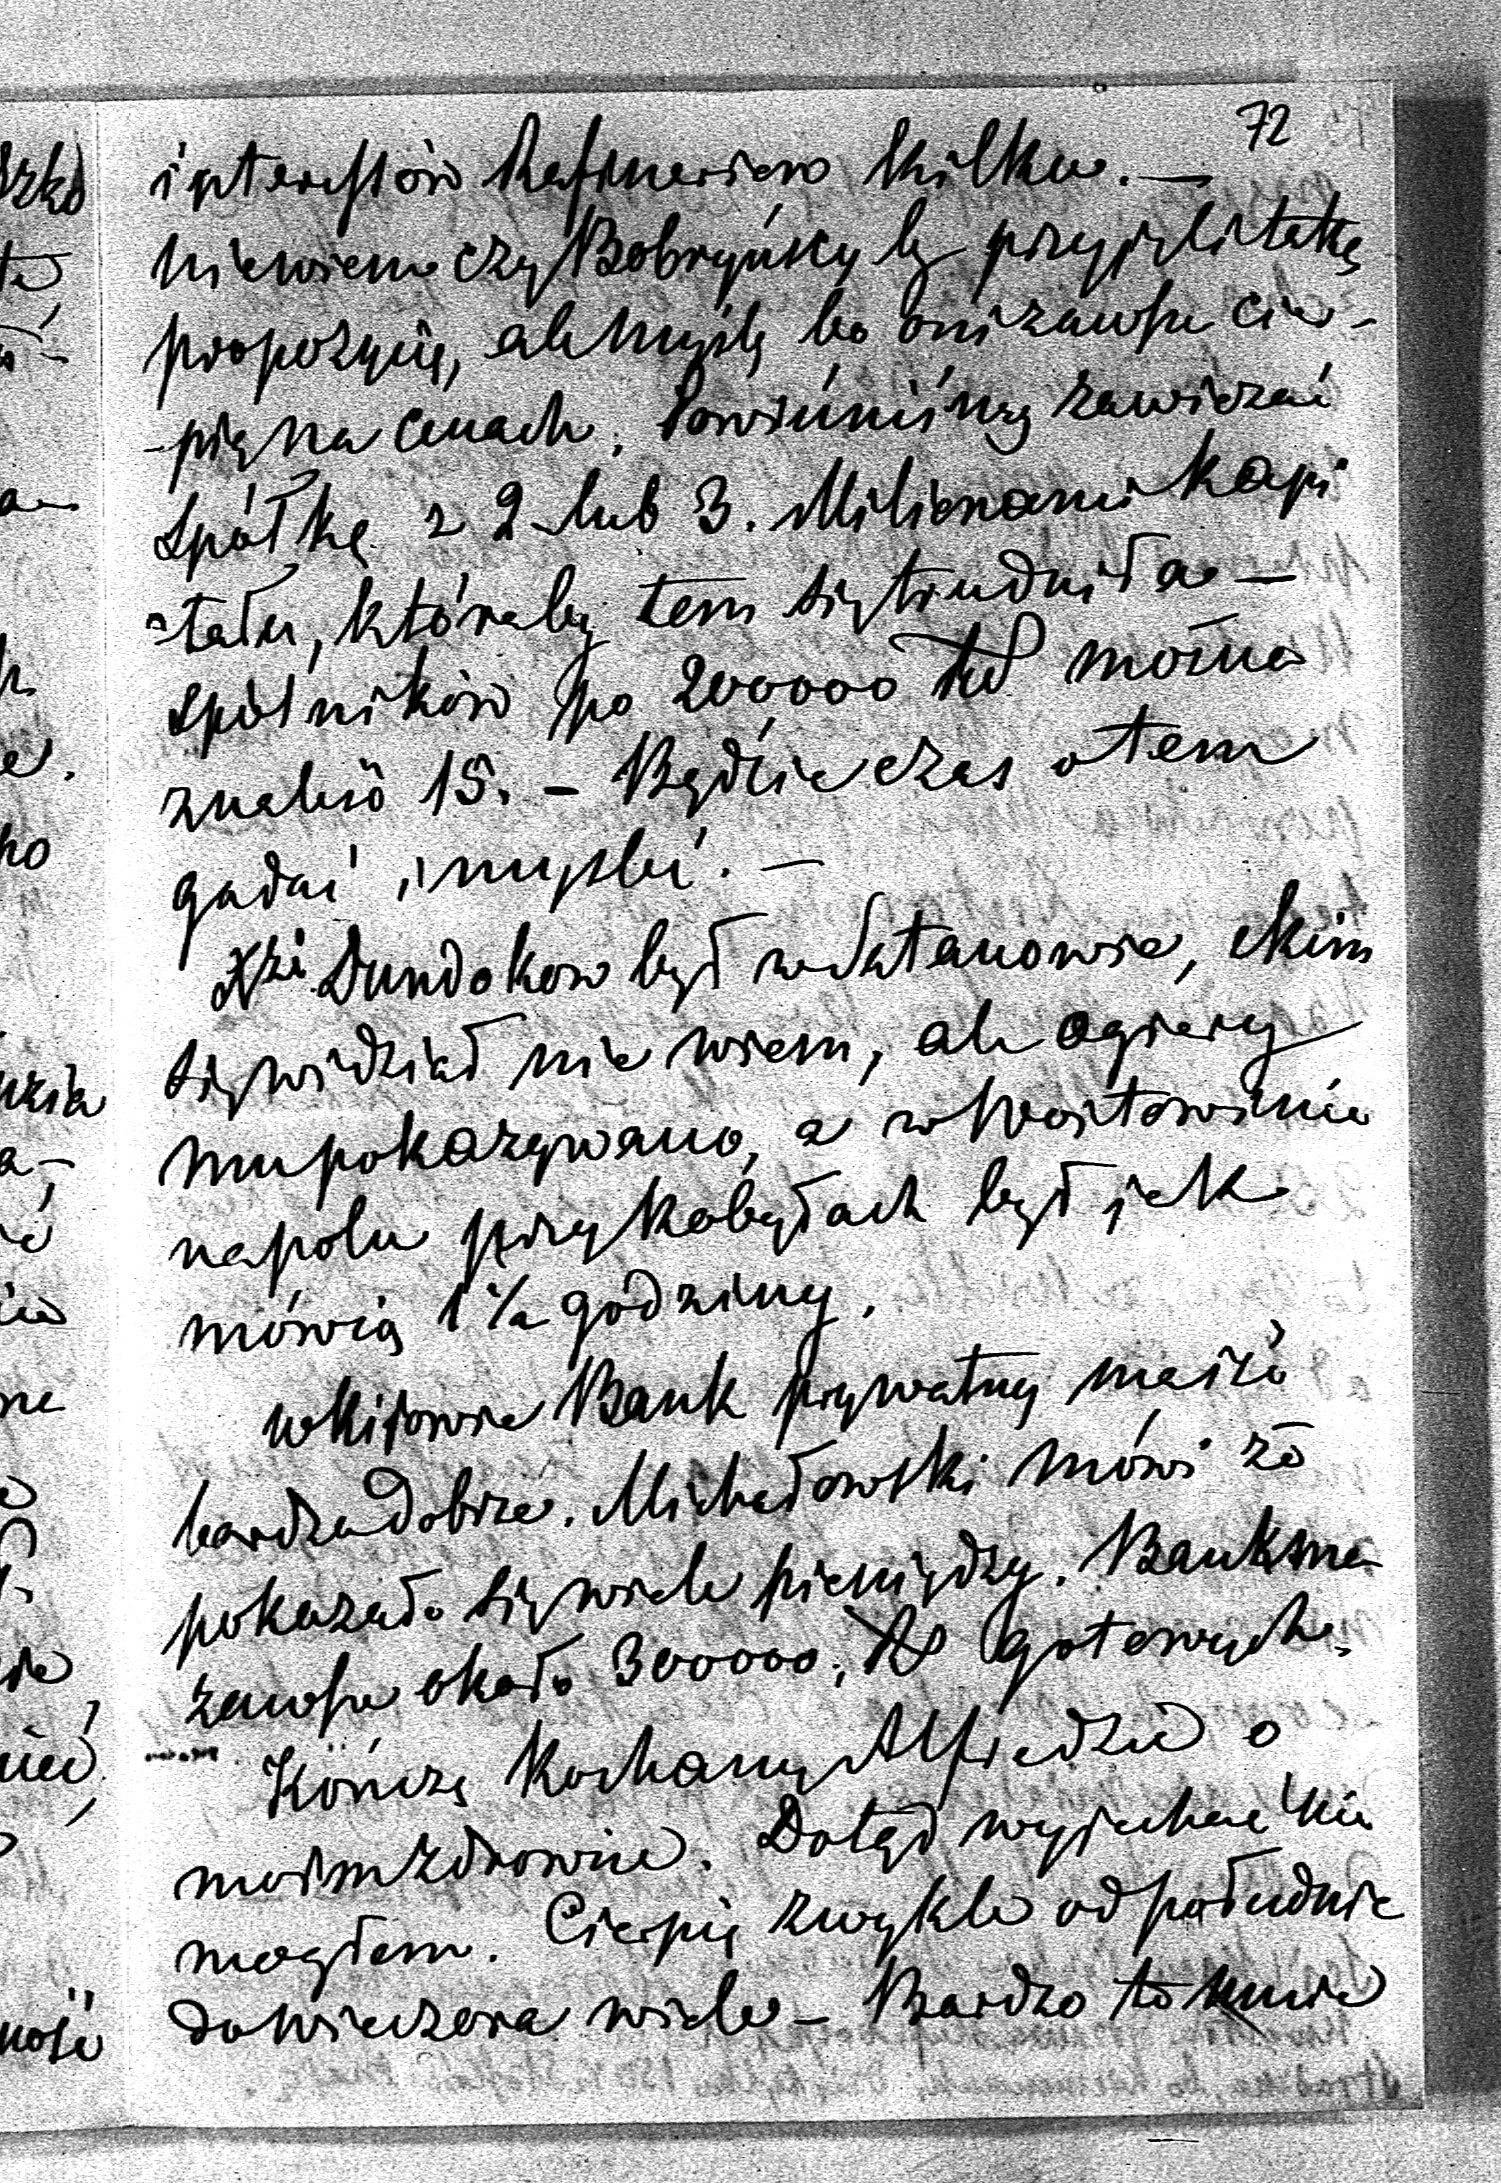 72
interessów Rafineriów kilku. —
niewiem czy Bobryńscy by przyjęli takę
propozycię, ale myślę bo oni zawsze cier-
-pią na cenach. Powinniśmy zawiązać
Spółkę z 2 lub 3. Milionami kapi
-tału, któraby tem się trudniła —
Spólników po 200000 można
znaleść 15. — Będzie czas o tem
gadać i myśleć. —
Xże Dundokow był w Satanowie, z kim
się widział nie wiem, ale ogiery
mu pokazywano, a w
na polu przy kobyłach był jak
mówią 1 1/2 godziny.
w Kijowie Bank prywatny
bardzo dobrze. Michałowski mówi że
pokazało się wiele pieniędzy. Bank ma
zawsze około 300000 gotowych.
Kończę Kochany Alfredzie o
moim zdrowiu. Dotąd wyjechać nie
mogłem. Cierpię zwykle od południa
do wieczora wiele — Bardzo to mnie